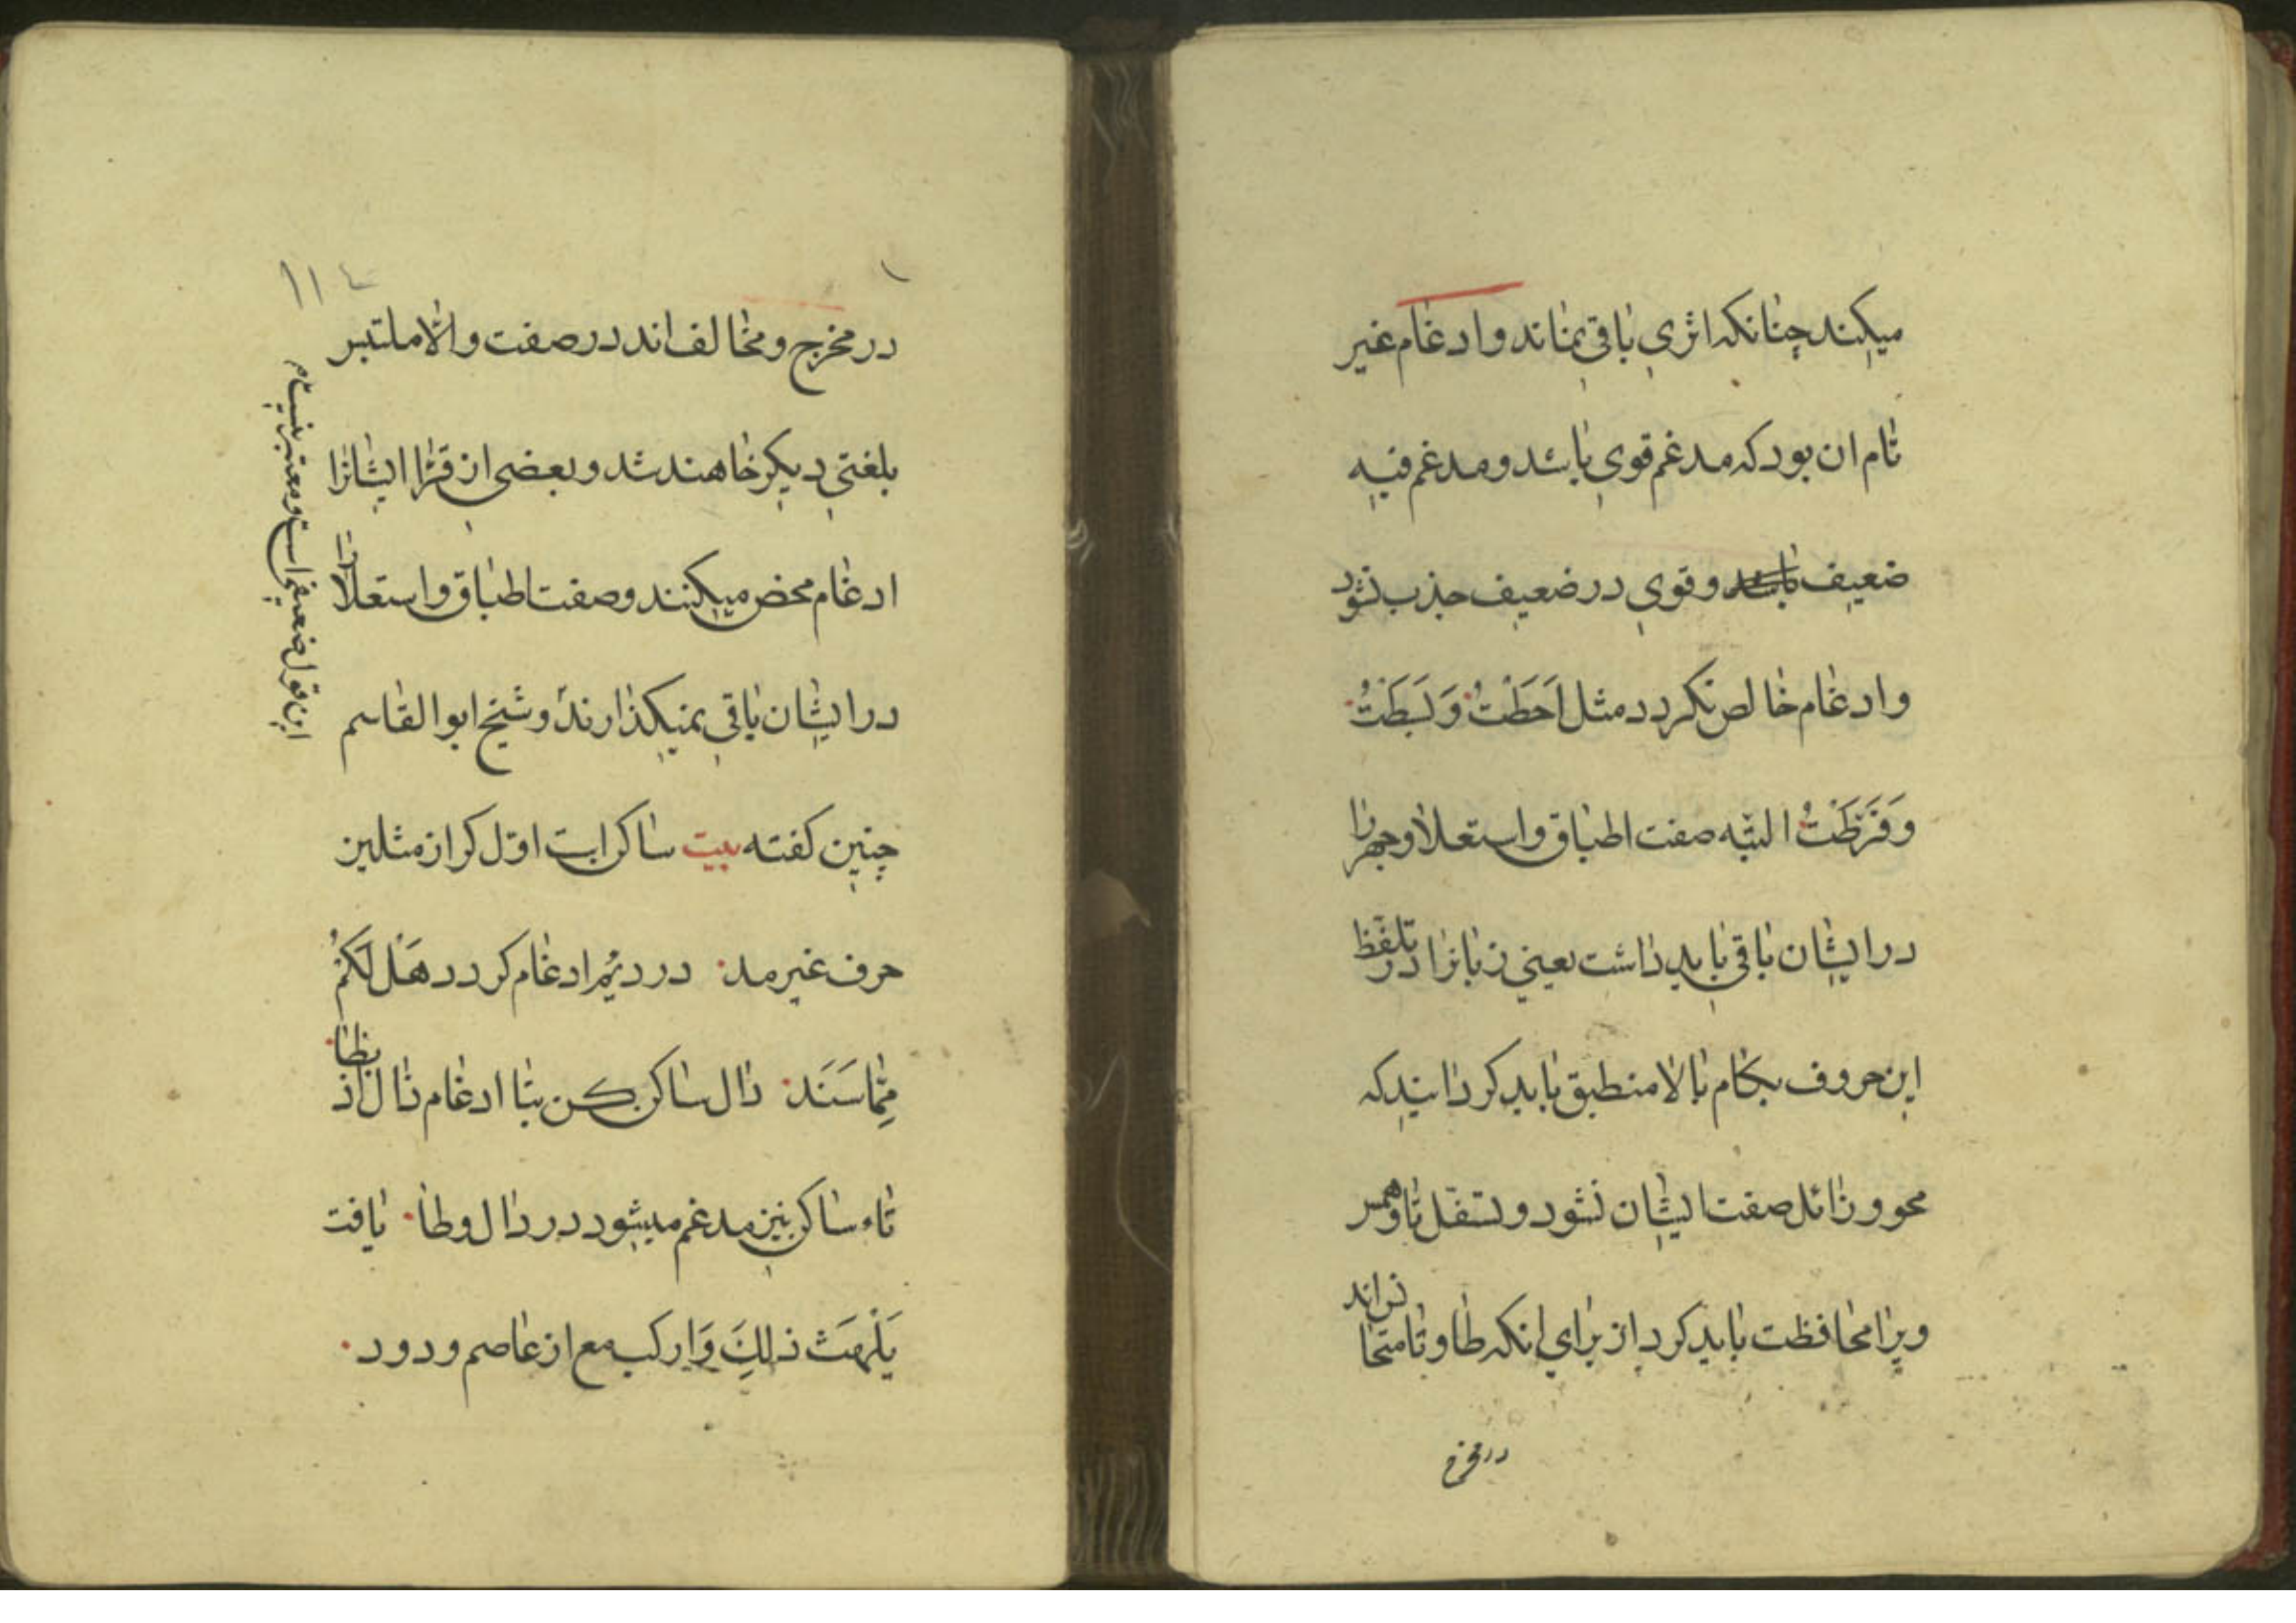 میکنند چنانکه اثری باقی نماند و ادغام غیر
تام ان بود که مدغم قوی باشد و مدغم فیه
ضعیف باشد و قوی در ضعیف جذب نشود
و ادغام خالص نکردد مثل اَحَطْتُ وَ بَسَطْتُ
وَ فَرَّطْتُ البتّه صفت اطباق و استعلا و جهر را
در ایشان باقی باید داشت یعنی زبانرا در تلفّظ
این حروف بکام بالا منطبق باید کردانید که
محو و زائل صفت ایشان نشود و تسفّل تا و همس
ویرا محافظت باید کرد از برای انکه طا و تا متحا
نراند
در مخرج
۱۱۴
در مخرج و مخالف اند در صفت و الّا ملتبس
بلغتی دیکر خاهند شد و بعضی از قرّا ایشانرا
ادغام محض میکنند و صفت اطباق و استعلا را
در ایشان باقی نمیکذارند و شیخ ابو القاسم
چنین کفته بیت ساکن است اوّل کر از مثلین
حرف غیر مد در دیُم ادغام کردد هَل لَکُمْ
مِمَّا سَنَد دال ساکن کن بتا ادغام ذال اذ بظا
تاء ساکن نیز مدغم میشود در دال و طا یافت
یَلْهَث ذلِكَ وَارکب مع از عاصم ورود
این قول ضعیفی است و معتبر نیست م